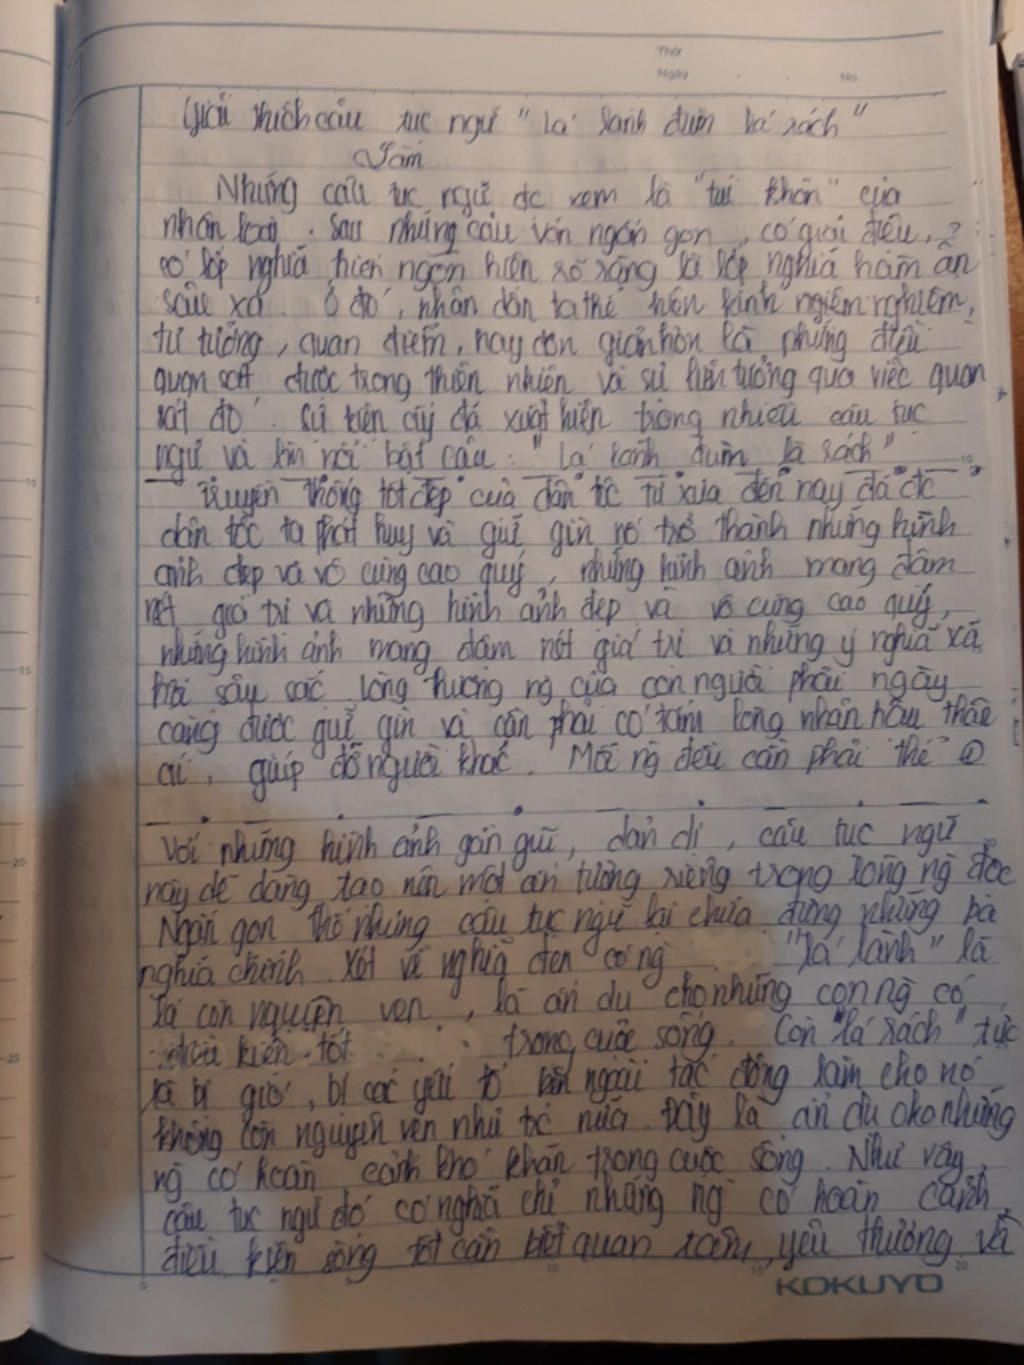 Thứ
Ngày No.
Giải thích câu tục ngữ "Lá lành đùm lá rách"
Làm
Những câu tục ngữ đc xem là "túi khôn" của
nhân loại. Sau những câu văn ngắn gọn, có giai điệu,
có lớp nghĩa hiển ngôn hiện rõ ràng là lớp nghĩa hàm ẩn
sâu xa. Ở đó, nhân dân ta thể hiện kinh ngiệm nghiệm,
tư tưởng, quan điểm, hay đơn giản hơn là những điều
quan sát được trong thiên nhiên và sự liên tưởng qua việc quan
sát đó. Sự kiện ấy đã xuất hiện trong nhiều câu tục
ngữ và nổi bật câu: "Lá lành đùm lá rách"
Truyền thống tốt đẹp của dân tộc từ xưa đến nay đã đc
dân tộc ta phát huy và giữ gìn nó trở thành những hình
ảnh đẹp và vô cùng cao quý, những hình ảnh mang đậm
nét giá trị và những hình ảnh đẹp và vô cùng cao quý,
những hình ảnh mang đậm nét giá trị và những ý nghĩa xã
hội sâu sắc. Lòng thương ng của con người phải ngày
càng được giữ gìn và cần phải có tấm lòng nhân hậu thân
ái, giúp đỡ người khác. Mỗi ng đều cần phải thế
Với những hình ảnh gần gũi, dản dị, câu tục ngữ
này dễ dàng tạo nên một ấn tượng riêng trong lòng ng đọc
Ngắn gọn thế nhưng câu tục ngữ lại chứa đựng những
nghĩa chính. Xét về nghĩa đen có ng "lá lành" là
lá còn nguyên vẹn, là ẩn dụ cho những con ng có
điều kiện tốt trong cuộc sống. Còn "lá rách" tức
là bị gió, bị các yếu tố bên ngoài tác động làm cho nó
không còn nguyên vẹn như trc nữa. Đây là ẩn dụ cho những
ng có hoàn cảnh khó khăn trong cuộc sống. Như vậy,
câu tục ngữ đó có nghĩa chỉ những ng có hoàn cảnh,
điều kiện sống tốt cần biết quan tâm, yêu thương và
KOKUYO